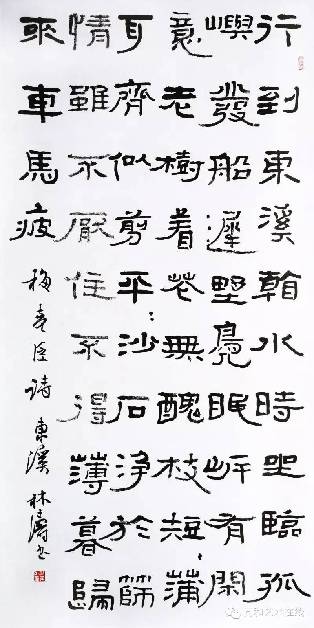 行到東溪看水時坐臨孤
嶼發船遲野鳧眠岸有閑
意老樹着花無醜枝短〻蒲
耳齊似剪平〻沙石淨於篩
情雖不厭住不得薄暮歸
來車馬疲
梅堯臣詩東溪 林濤书
艺术在线